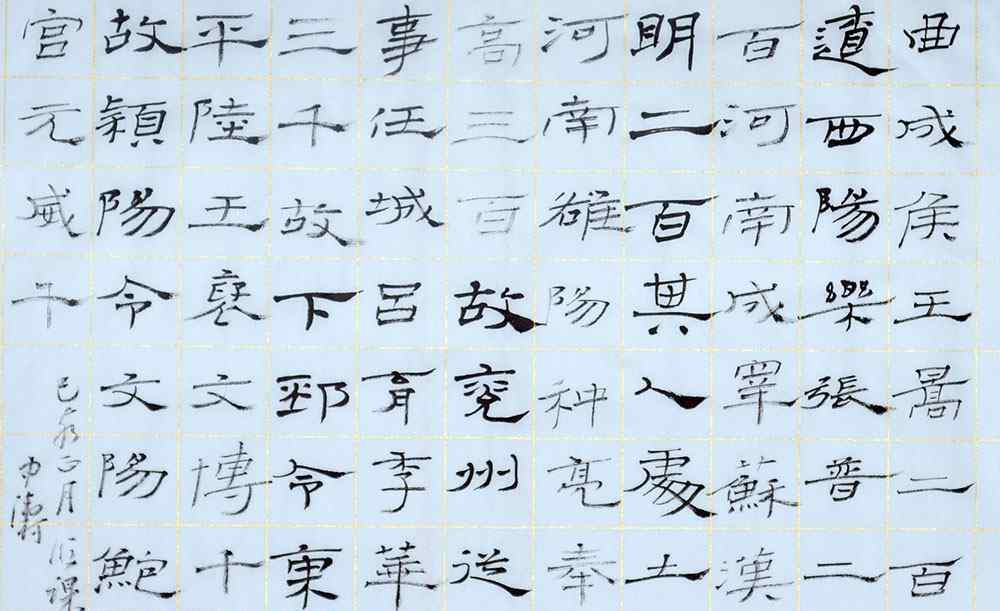 曲成侯王暠二百
遼西陽樂張普二
百河南成睪蘇漢
明二百其人處土
河南雒陽种亮奉
高三百故兗州從
事任城呂育李華
三千故下邳令東
平陸王褒文博千
故穎陽令文陽鮑
宮元威千
己亥正月臨課